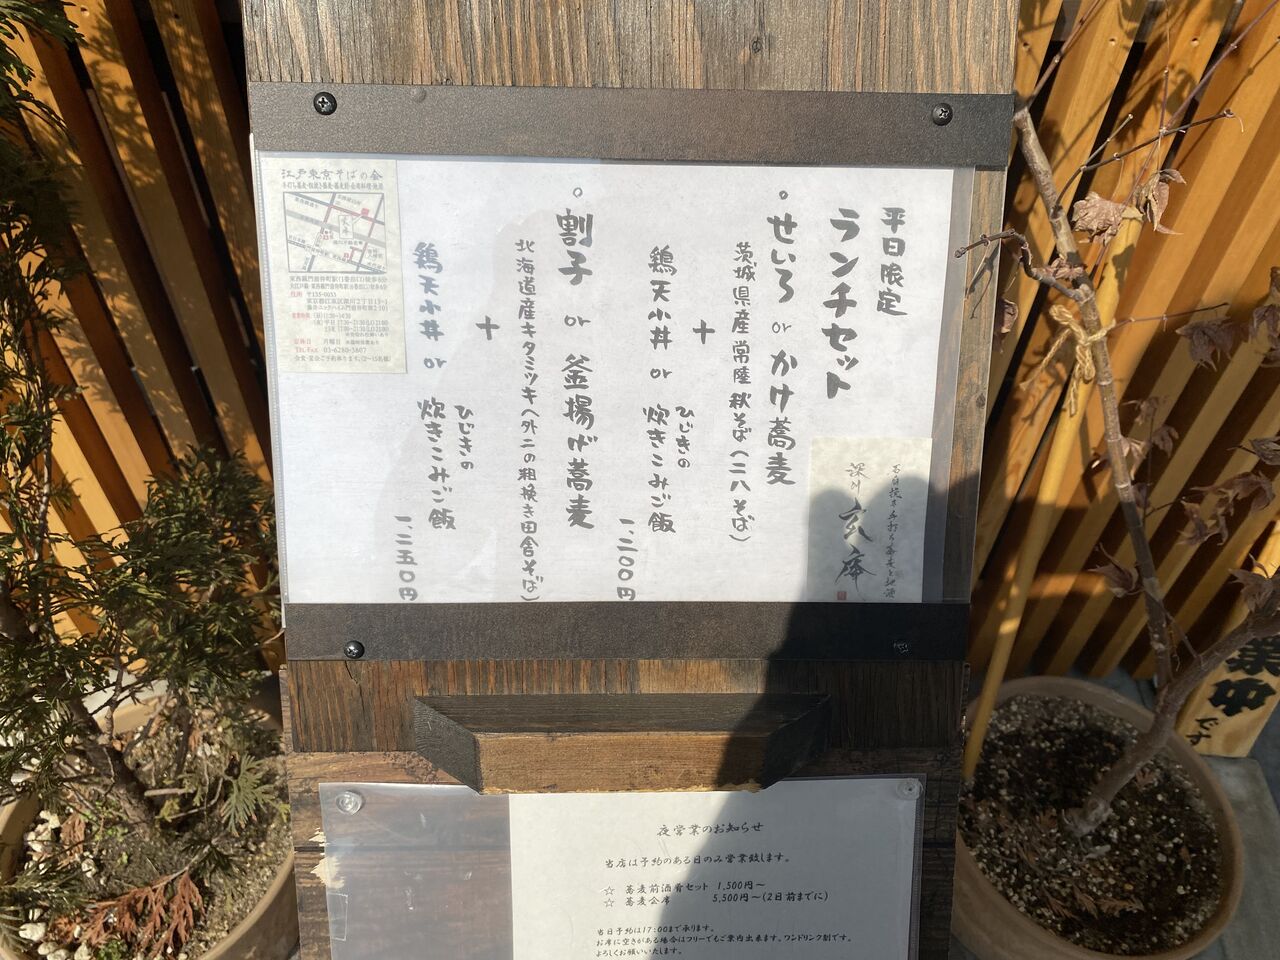 平日限定
ランチセット
。せいろ or かけ蕎麦
茨城県産常陸秋そば(二八そば)
+
鶏天小丼 or ひじきの炊きこみご飯
一、二〇〇円
。割子 or 釜揚げ蕎麦
北海道産キタミツキ(外二の粗挽き田舎そば)
+
鶏天小丼 or ひじきの炊きこみご飯
一、二五〇円
深川 玄庵
江戸東京そばの会
〒135-0033
月曜日
TEL.FAX 03-6280-3807
夜営業のお知らせ
当店は予約のある日のみ営業致します。
☆ 蕎麦前酒肴セット 1,500円~
☆ 蕎麦会席 5,500円~(2日前までに)
当日予約は17:00まで承ります。
お席に空きがある場合はフリーでもご案内出来ます。ワンドリンク制です。
よろしくお願いいたします。
業中
です